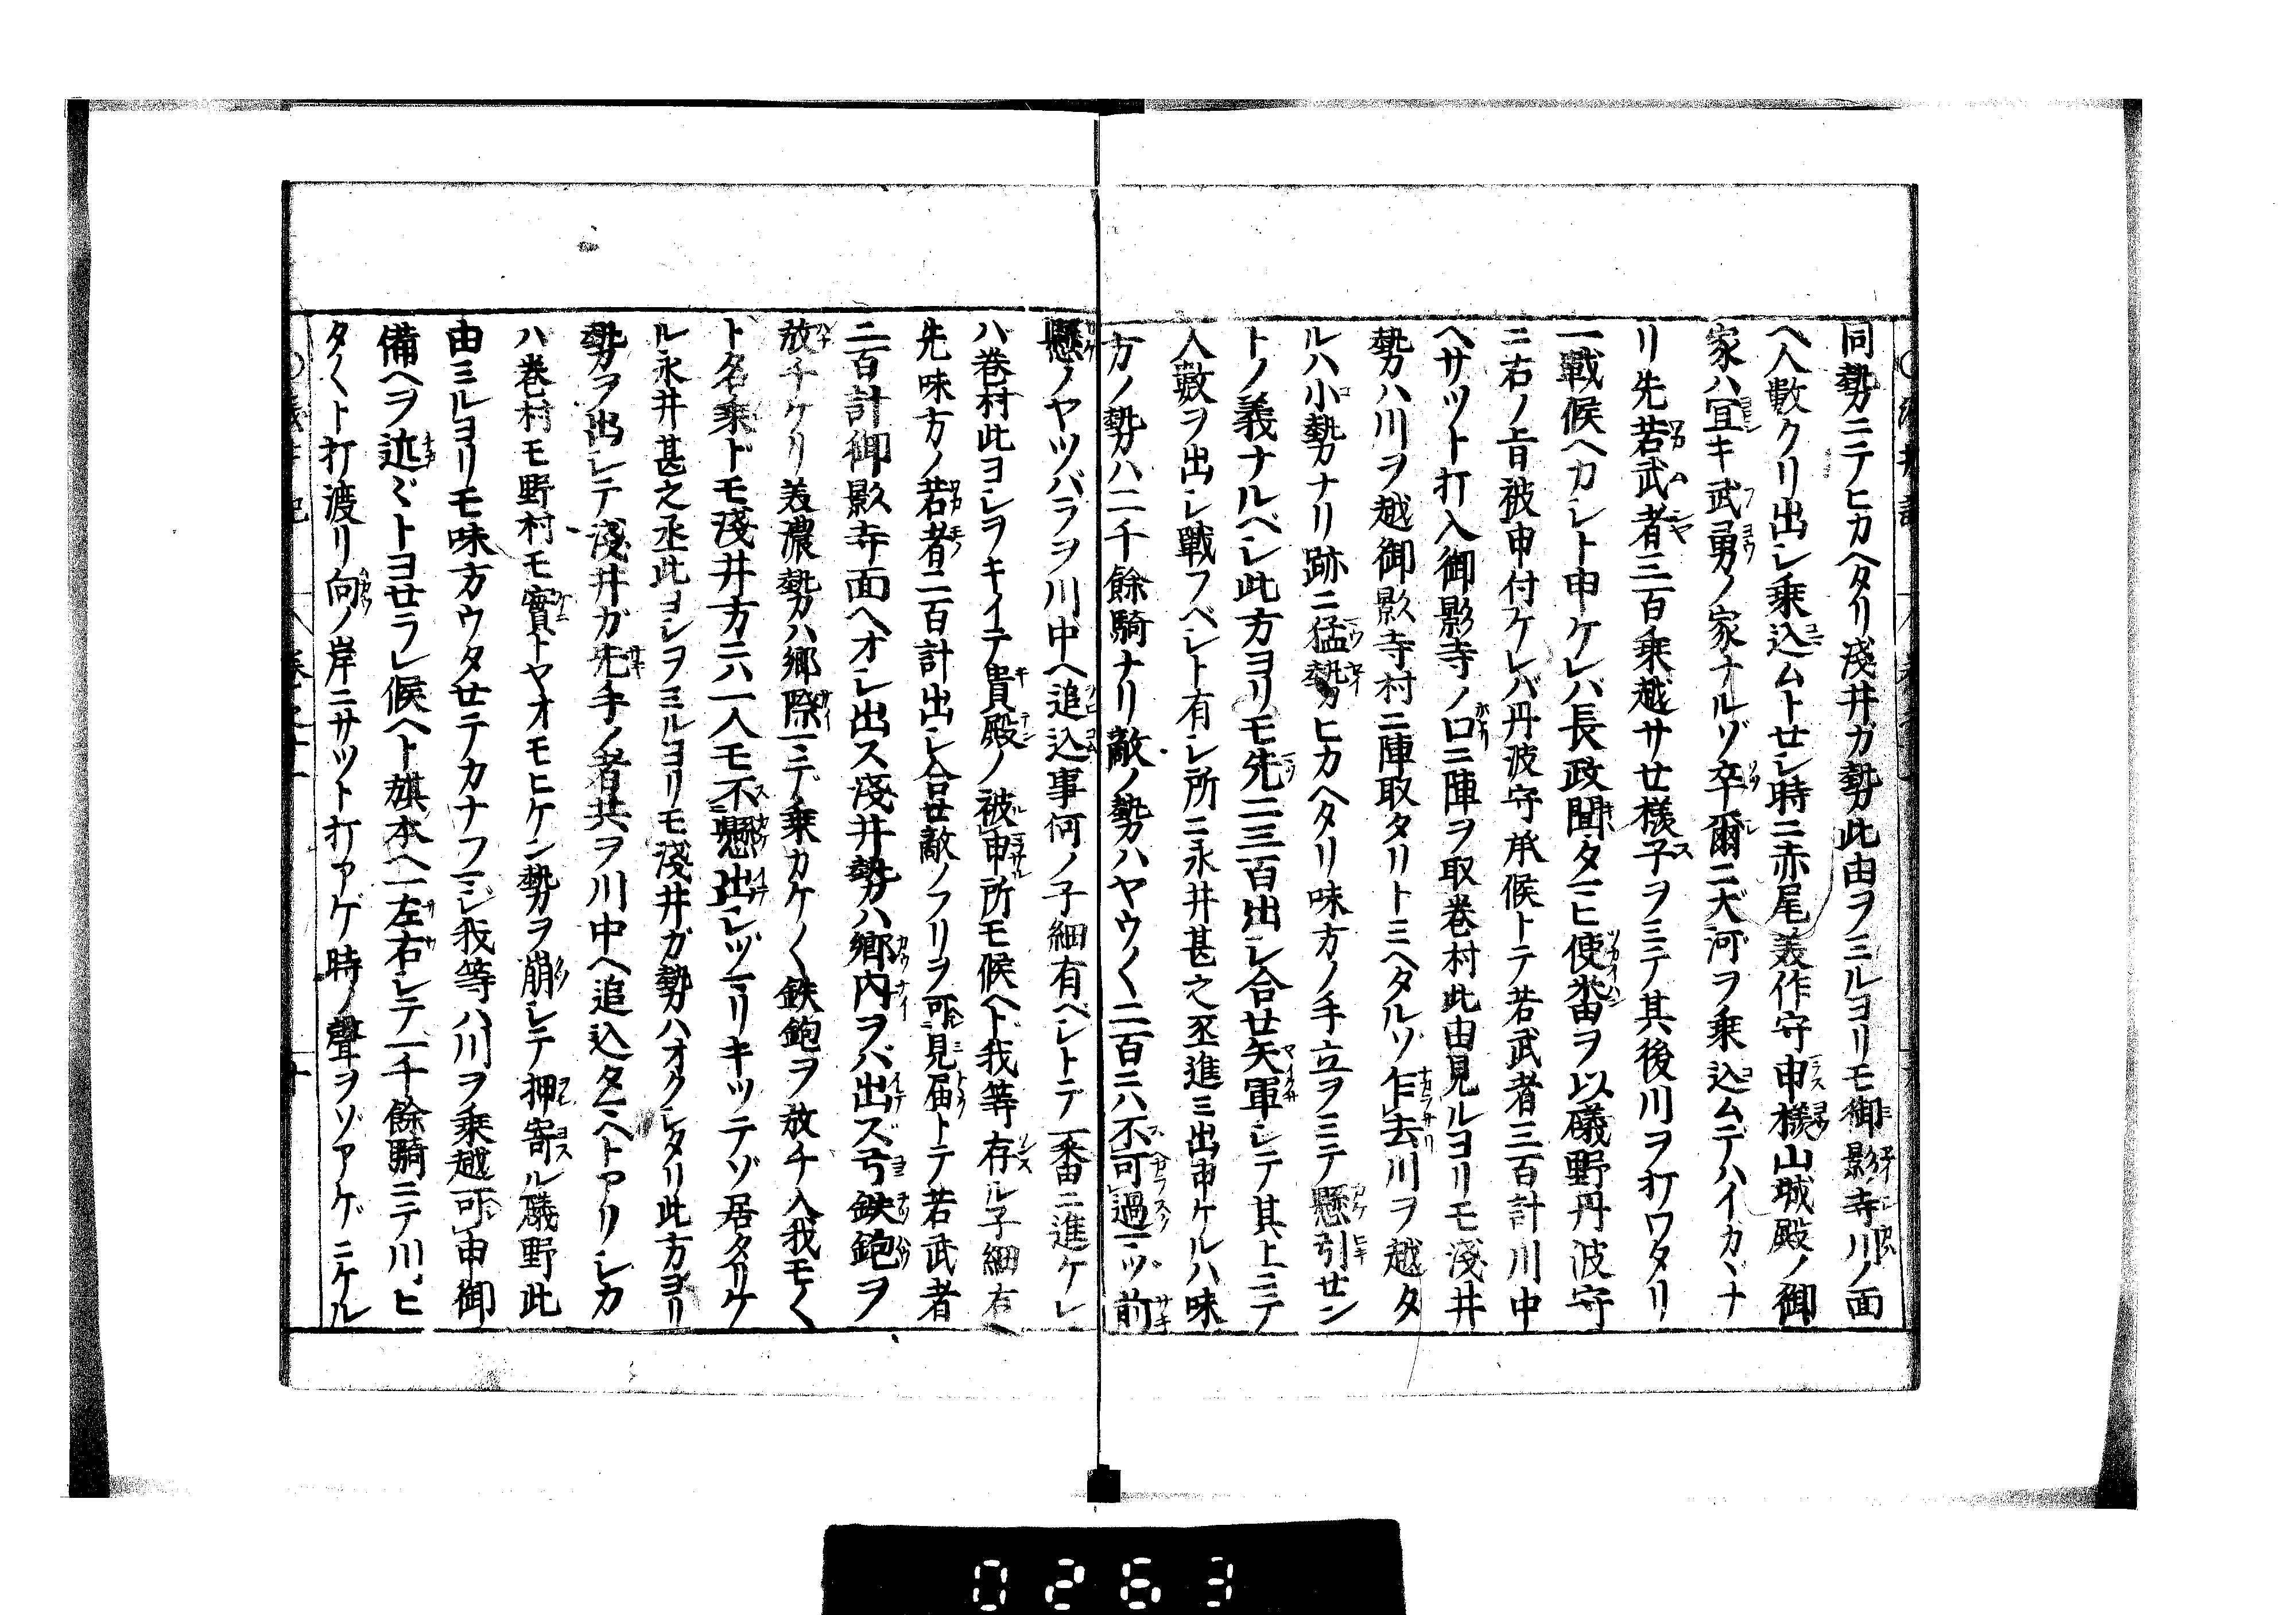 同勢ニテヒカヘタリ淺井ガ勢此由ヲミルヨリモ御影寺川ノ面
ヘ人數クリ出シ乗込ムトせシ時ニ赤尾美作守申様山城殿ノ御
家ハ宜キ武勇ノ家ナルゾ卒爾ニ大河ヲ乗込ムデハイカヾナ
リ先若武者三百乗越サせ様子ヲミテ其後川ヲ打ワタリ
一戰候ヘカシト申ケレハ長政聞タマヒ使番ヲ以礒野丹波守
ニ右ノ旨被申付ケレバ丹波守承候トテ若武者三百計川中
ヘサツト打入御影寺ノ口ニ陣ヲ取巻村此由見ルヨリモ淺井
勢ハ川ヲ越御影寺村ニ陣取タリトミヘタルゾ乍去川ヲ越タ
ルハ小勢ナリ跡ニ猛勢ヒカヘタリ味方ノ手立ヲミテ懸引せン
トノ義ナルベシ此方ヨリモ先二三百出シ合せ矢軍シテ其上ニテ
人數ヲ出シ戰フベシト有シ所ニ永井甚之丞進ミ出申ケルハ味
方ノ勢ハ二千餘騎ナリ敵ノ勢ハヤウ〱二百ニハ不可過マヅ前
懸ノヤツバラヲ川中ヘ追込事何ノ子細有ベシトテ一番ニ進ケレ
ハ巻村此ヨシヲキイテ貴殿ノ被申所モ候ヘド我等存ル子細有ヘ
先味方ノ若者二百計出シ合せ敵ノフリヲ可見届トテ若武者
二百計御影寺面ヘオシ出ス淺井勢ハ郷内ヲバ出ズ弓鉄鉋ヲ
放チケリ美濃勢ハ郷際マデ乗カケ〱鉄鉋ヲ放チ入我モ〱
ト名乗ドモ淺井方ニハ一人モ不懸出シヅマリキツテゾ居タリケ
ル永井甚之丞此ヨシヲミルヨリモ淺井ガ勢ハオクレタリ此方ヨリ
勢ヲ出シテ淺井ガ先手ノ者共ヲ川中ヘ追込タマヘトアリシカ
ハ巻村モ野村モ實トヤオモヒケン勢ヲ崩シテ押寄ル礒野此
由ミルヨリモ味方ウタせテカナフマジ我等ハ川ヲ乗越可申御
備ヘヲ近々トヨせラレ候ヘト旗本ヘ左右シテ一千餘騎ニテ川ヽヒ
タ〱ト打渡リ向ノ岸ニサツト打アゲ時ノ聲ヲゾアゲニケル
0263